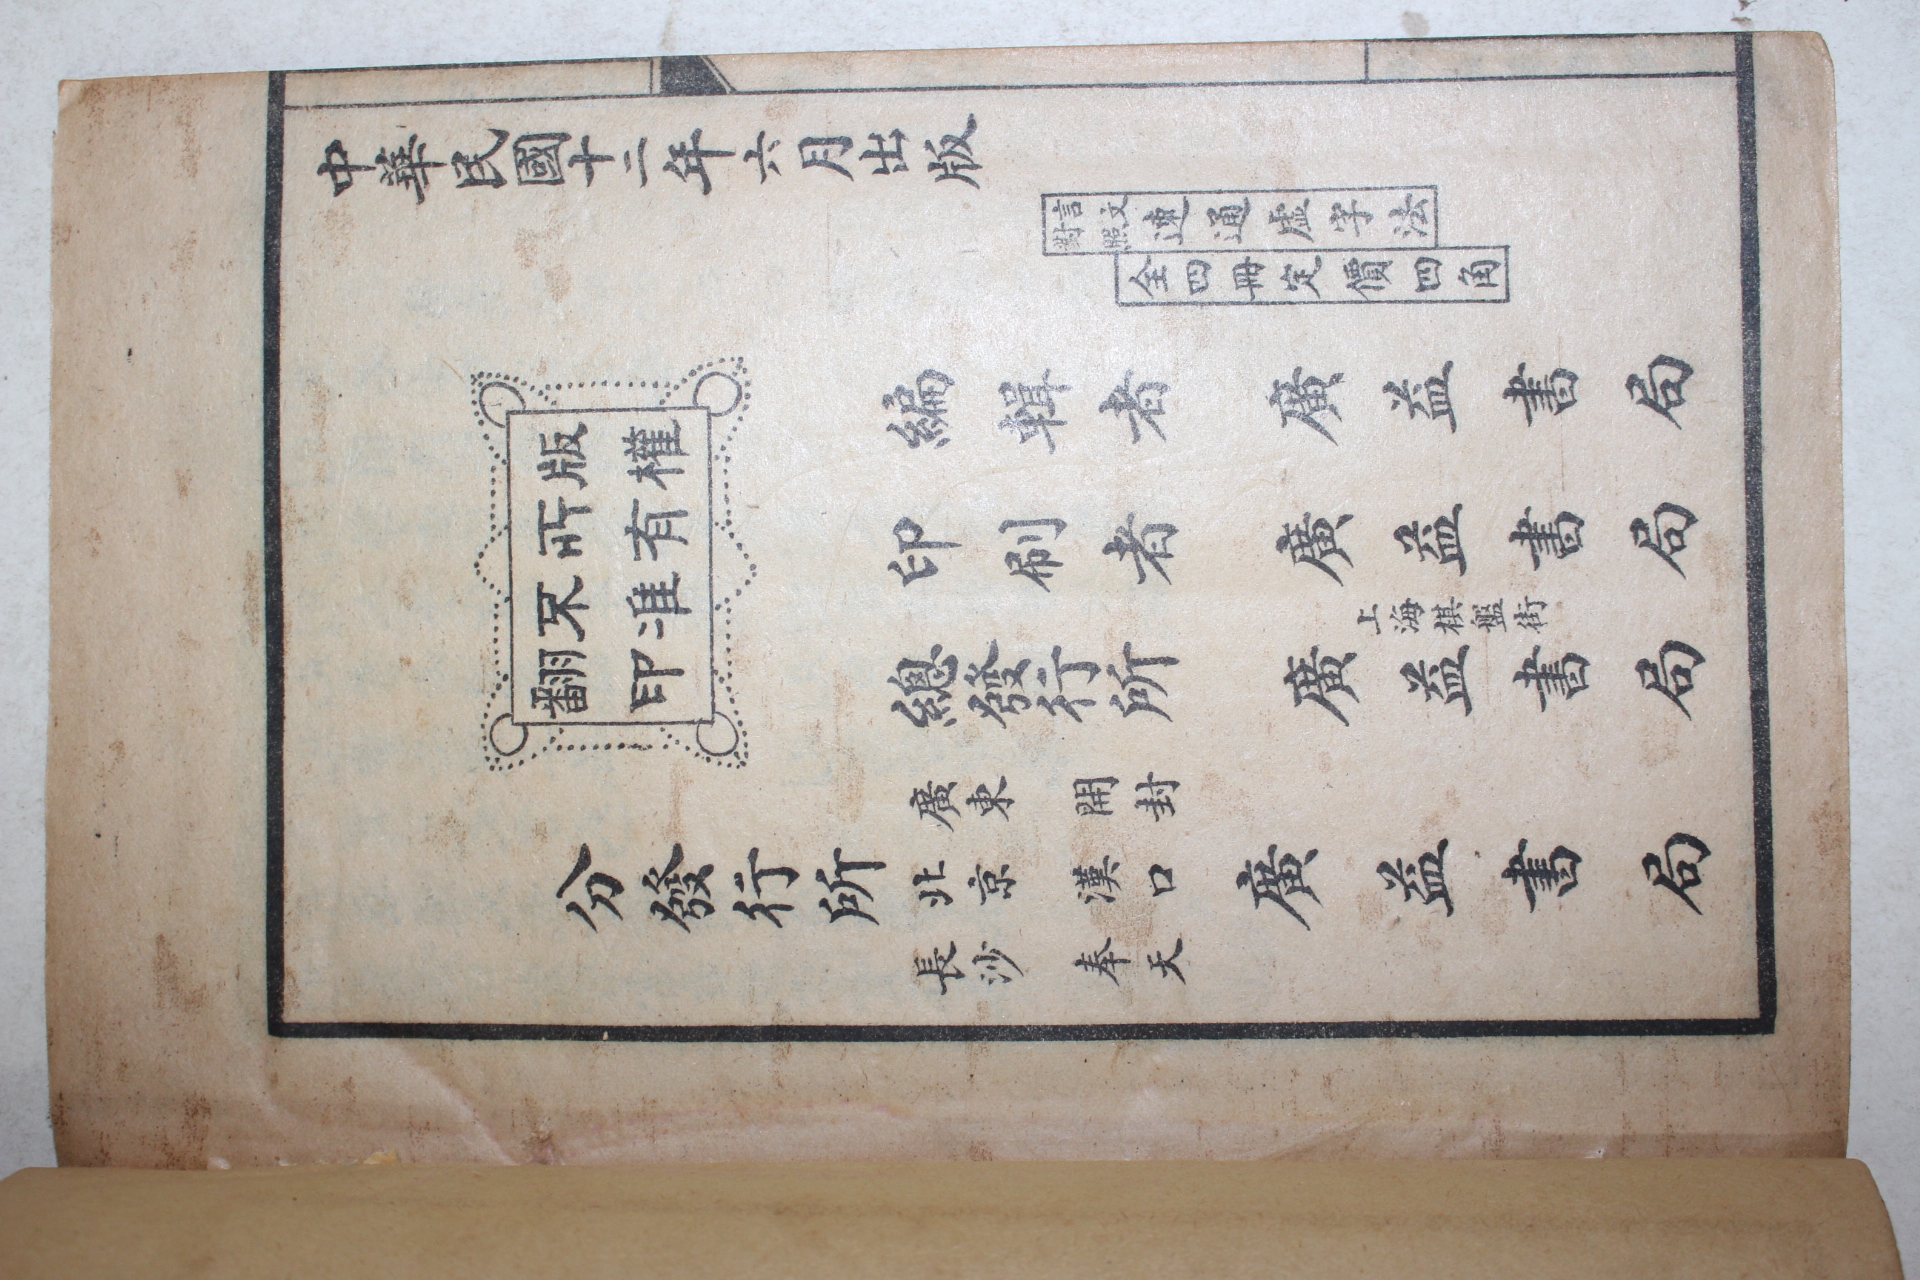 中華民國十二年六月出版
言文對照速通虛字法
全四冊定價四角
版權
所有
不准
翻印
編輯者 廣益書局
印刷者 廣益書局
上海棋盤街
總發行所 廣益書局
廣東 開封
分發行所 北京 漢口 廣益書局
長沙 奉天